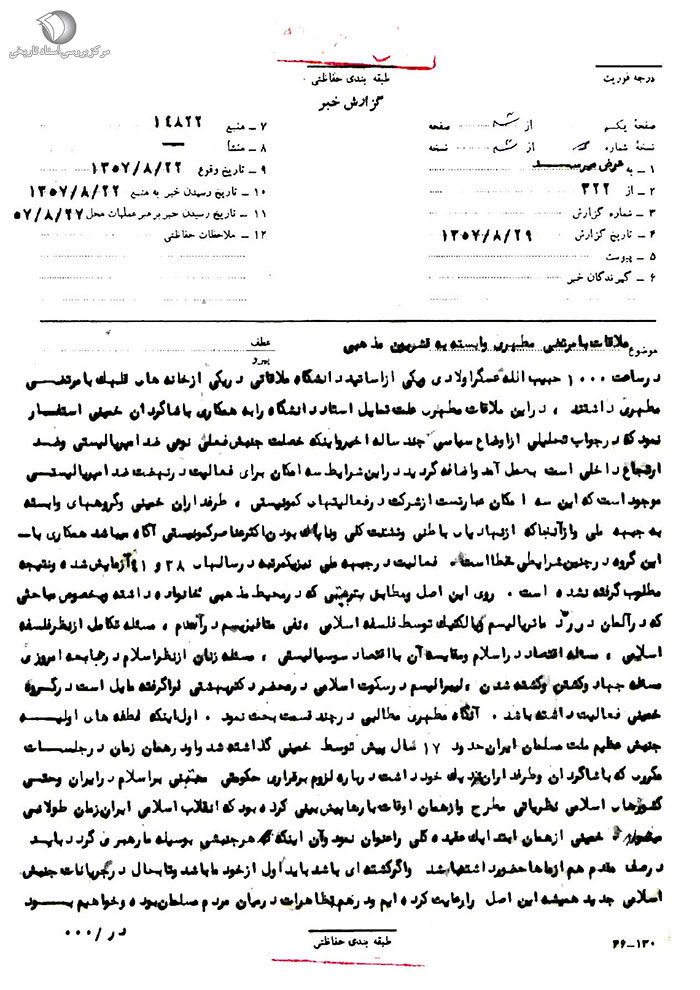 مرکز بررسی اسناد تاریخی
درجه فوریت
طبقه بندی حفاظتی
گزارش خبر
صفحهٔ یکم از ۳ صفحه
نسخهٔ شماره از ۳ نسخه
۱ – به عرض میرسد
۲ – از ۳۲۲
۳ – شماره گزارش
۴ – تاریخ گزارش ۱۳۵۷/۸/۲۹
۵ – پیوست
۶ – گیرندگان خبر
۷ – منبع ۱٤۸۲۲
۸ – منشأ —
۹ – تاریخ وقوع ۱۳۵۷/۸/۲۲
۱۰ – تاریخ رسیدن خبر به منبع ۱۳۵۷/۸/۲۲
۱۱ – تاریخ رسیدن خبر برهبر عملیات محل ۵۷/۸/۲۷
۱۲ – ملاحظات حفاظتی
موضوع ملاقات با مرتضی مطهری وابسته به قشریون مذهبی
عطف
پیرو
در ساعت ۱۰۰۰ حبیب الله عسگراولادی ویکی از اساتید دانشگاه ملاقاتی در یکی از خانه های قلهک با مرتضی
مطهری داشتند ، در این ملاقات مطهری علت تمایل استاد دانشگاه را به همکاری با شاگردان خمینی استفسار
نمود که در جواب تحلیلی از اوضاع سیاسی چند ساله اخیر واینکه خصلت جنبش فعلی نوعی ضد امپریالیستی وضد
ارتجاع داخلی است بعمل آمد واضافه گردید در این شرایط سه امکان برای فعالیت در نهضت ضد امپریالیستی
موجود است که این سه امکان عبارتست از شرکت در فعالیتهای کمونیستی ، طرفداران خمینی وگروههای وابسته
به جبهه ملی واز آنجا که از بنیاد باطنی وتشتت کلی وناپاک بودن اکثر عناصر کمونیستی آگاه میباشد همکاری با –
این گروه در چنین شرایطی خطا است . فعالیت در جبهه ملی نیز یکمرتبه در سالهای ۳۸ و ٤۱ آزمایش شده ونتیجه
مطلوب گرفته نشده است . روی این اصل ومطابق تربیتی که در محیط مذهبی خانواده داشته وبخصوص مباحثی
که در آلمان در رد ماتریالیسم دیالکتیک توسط فلسفه اسلامی ، نفی متافیزیسم در ، مسئله تکامل از نظر فلسفه
اسلامی ، مسئله اقتصاد در اسلام ومقایسه آن با اقتصاد سوسیالیستی ، مسئله زنان از نظر اسلام در جامعه امروزی
مسئله جهاد وکشتن وکشته شدن ، لیبرالیسم در سکوت اسلامی در محضر دکتر بهشتی فرا گرفته مایل است در گروه
خمینی فعالیت داشته باشد . آنگاه مطهری مطالبی در چند قسمت بحث نمود . اول اینکه نطفه های اولیه
جنبش عظیم ملت مسلمان ایران حدود ۱۷ سال پیش توسط خمینی گذاشته شد واو در همان زمان در جلسات
مکرر که با شاگردان وطرفداران نزدیک خود داشت درباره لزوم برقراری حکومتی مبتنی بر اسلام در ایران وحتی
کشورهای اسلامی نظریاتی مطرح واز همان اوقات بارها پیش بینی کرده بود که انقلاب اسلامی ایران زمان طولانی
میشود . خمینی از همان ابتدا یک عقیده کلی را عنوان نمود وآن اینکه هر جنبشی بوسیله ما رهبری گردد باید
در صف مقدم هم از ماها حضور داشته باشد واگر کشته ای باشد باید اول از خود ما باشد وتا بحال در جریانات جنبش
اسلامی جدید همیشه این اصل را رعایت کرده ایم ودر هم تظاهرات در میان مردم مسلمان بوده وخواهیم بود
در /۰۰۰
طبقه بندی حفاظتی
۱۳۰–۳۶